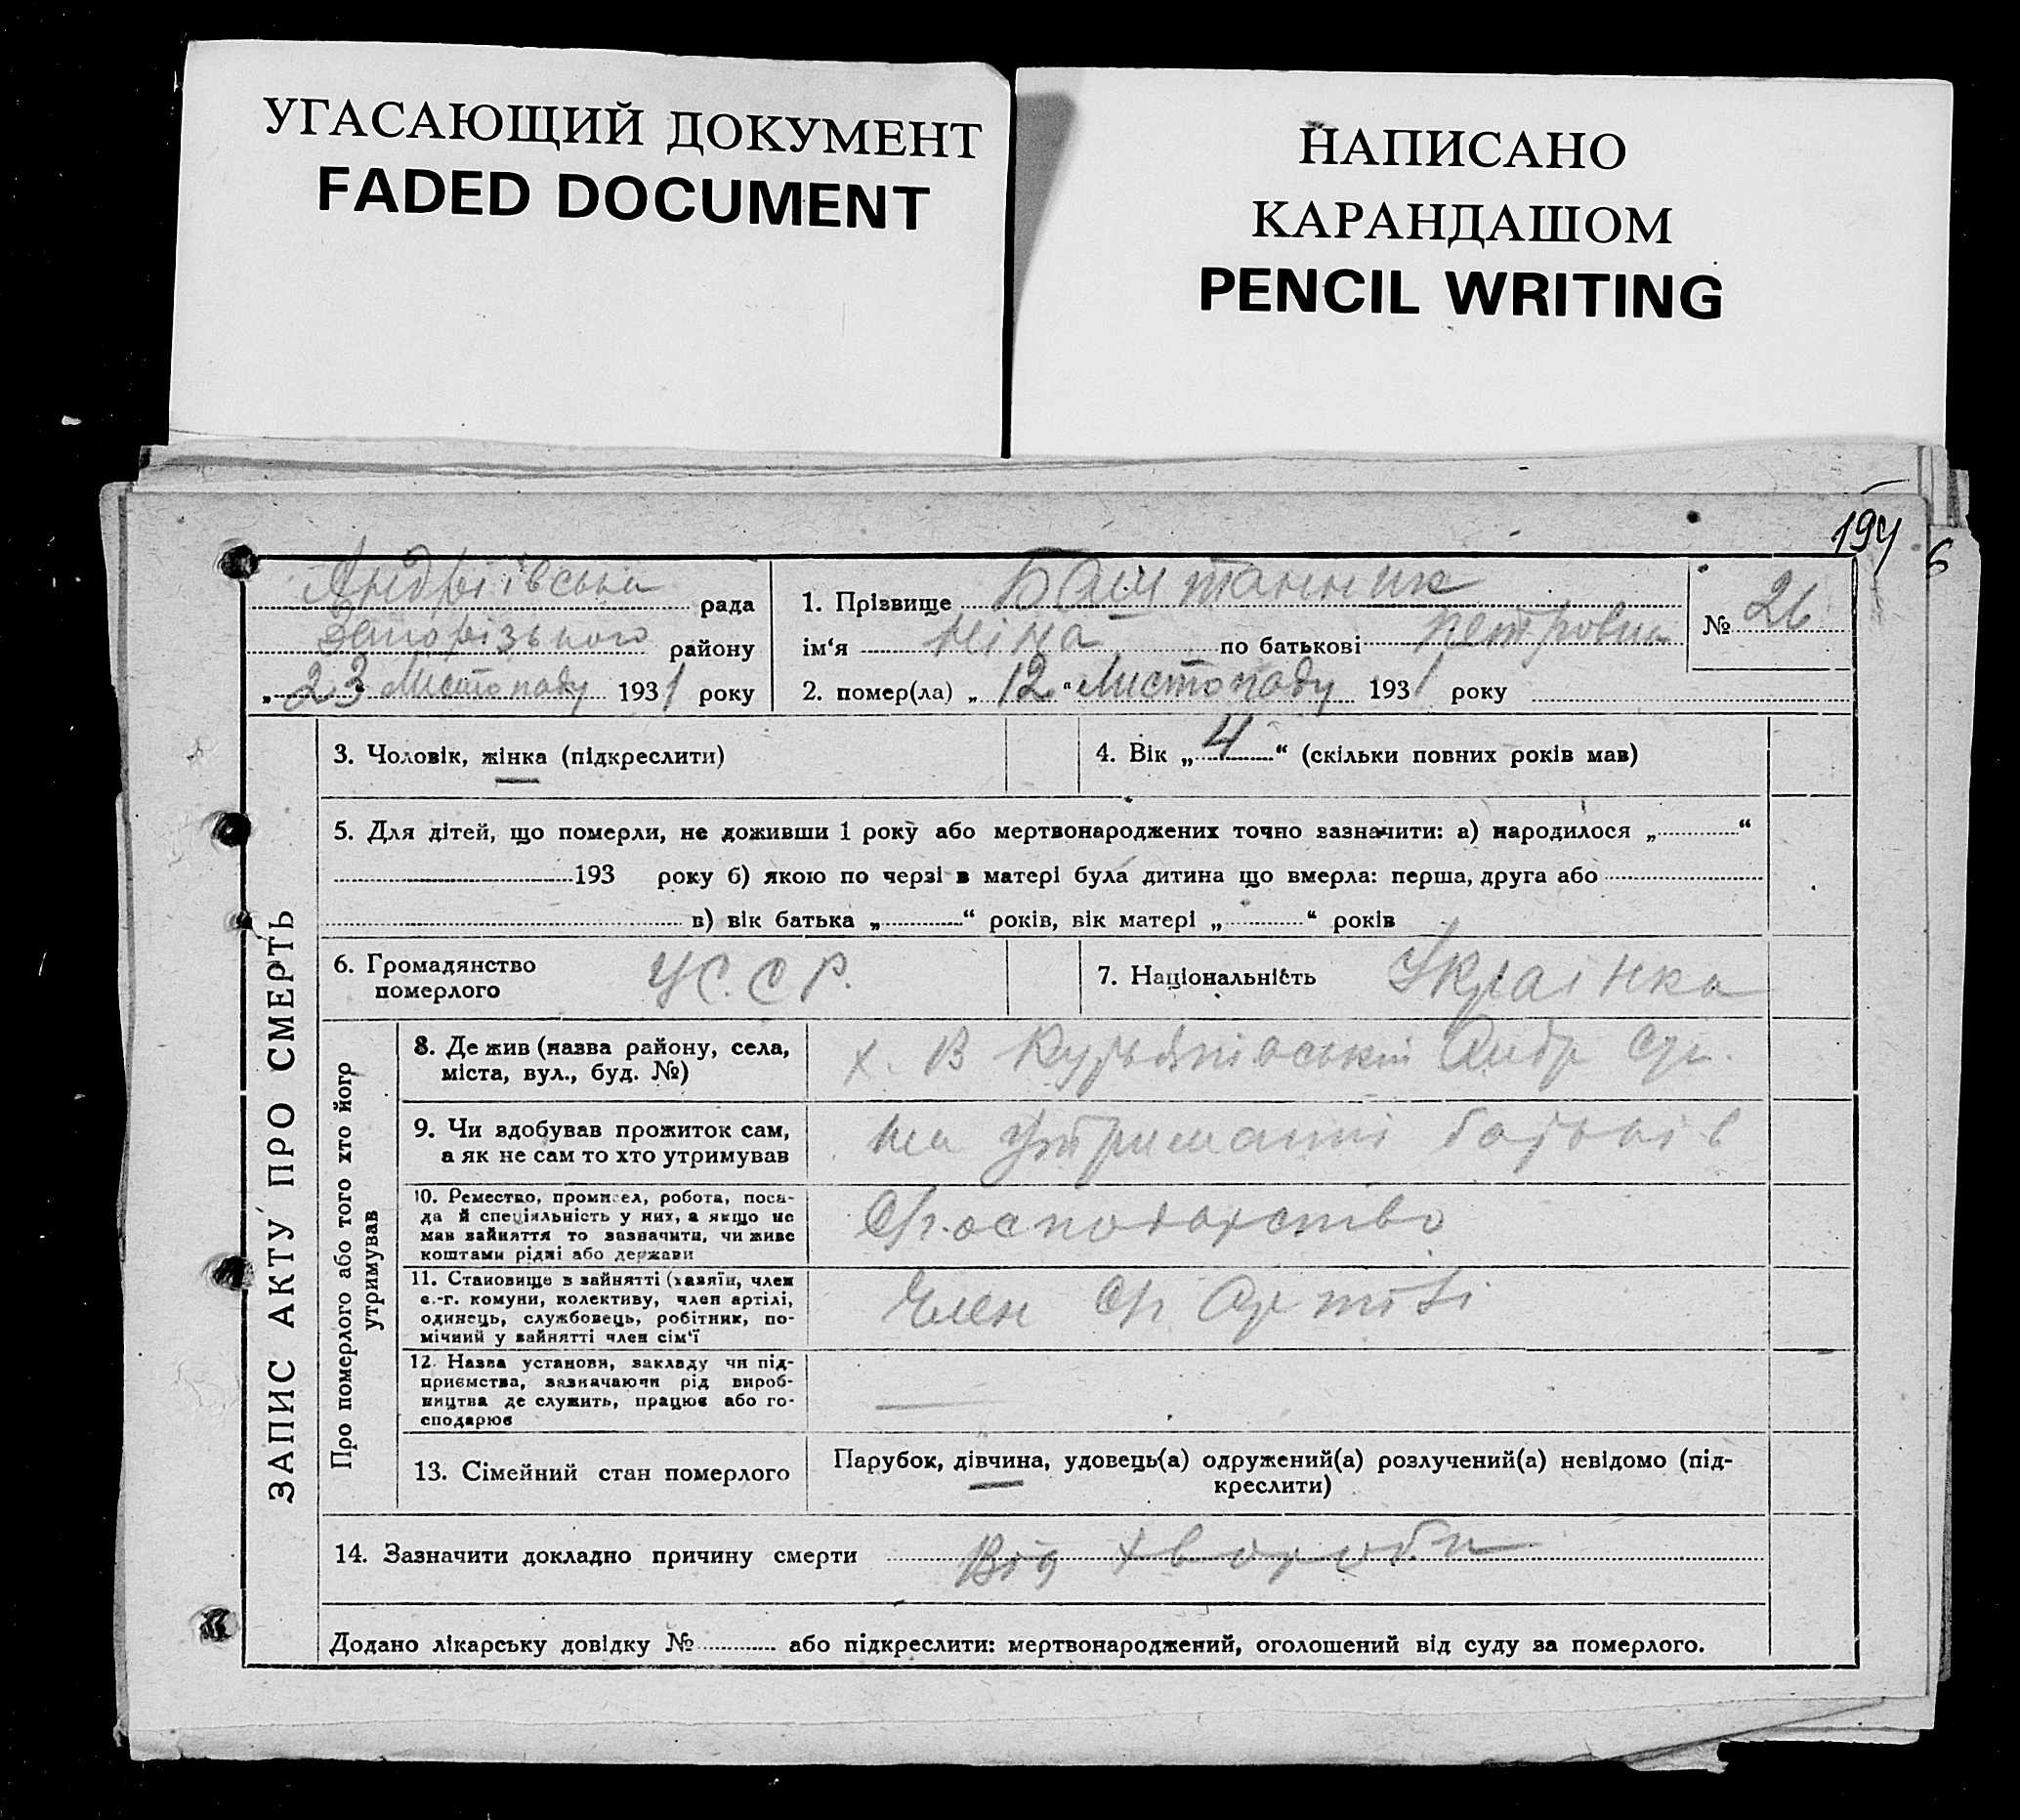 УГАСАЮЩИЙ ДОКУМЕНТ
FADED DOCUMENT
НАПИСАНО
КАРАНДАШОМ
PENCIL WRITING
6
Андріївська рада
Запорізького району
„23 Листопаду 1931 року
1. Прізвище Баштанник
ім‘я Ніна по батькові Петровна
2. помер(ла) „12“ Листопаду 1931 року
№ 26
ЗАПИС АКТУ ПРО СМЕРТЬ
3. Чоловік, жінка (підкреслити)
4. Вік „4“ (скільки повних років мав)
5. Для дітей, що померли, не доживши 1 року або мертвонароджених точно зазначити: а) народилося „ “
193 року б) якою по черзі в матері була дитина що вмерла: перша, друга або
в) вік батька „ “ років, вік матері „ “ років
6. Громадянство
померлого
УС.С.Р.
7. Національність Українка
Про померлого або того хто його
утримував
8. Де жив (назва району, села,
міста, вул., буд. №)
х. В Андр
9. Чи здобував прожиток сам,
а як не сам то хто утримував
на утриманні батьків
10. Ремество, промисел, робота, поса-
да й спеціяльність у них, а якщо не
мав зайняття то зазначити, чи живе
коштами рідні або держави
С/господарство
11. Становище в зайнятті (хазяїн, член
с.-г. комуни, колективу, член артілі,
одинець, службовець, робітник, по-
мічний у зайнятті член сім‘ї
Член с/г Артілі
12. Назва установи, закладу чи під-
приємства, зазначаючи рід вироб-
ництва де служить, працює або го-
сподарює
13. Сімейний стан померлого
Парубок, дівчина, удовець(а) одружений(а) розлучений(а) невідомо (під-
креслити)
14. Зазначити докладно причину смерти Від хвороби
Додано лікарську довідку № або підкреслити: мертвонароджений, оголошений від суду за померлого.